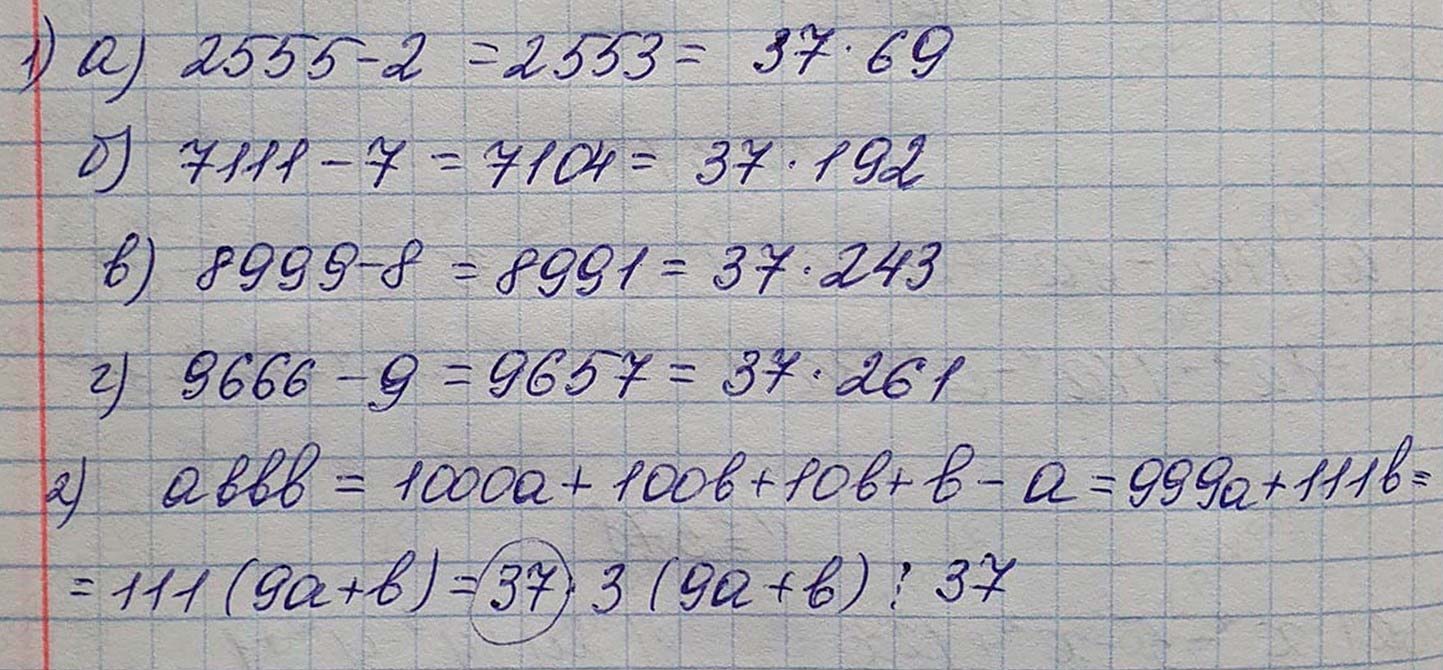 1) а) 2555-2 = 2553 = 37·69
б) 7111-7 = 7104 = 37·192
в) 8999-8 = 8991 = 37·243
г) 9666-9 = 9657 = 37·261
2) аввв = 1000а + 100в + 10в + в - а = 999а + 111в =
= 111 (9а+в) = 37·3 (9а+в) ⋮ 37